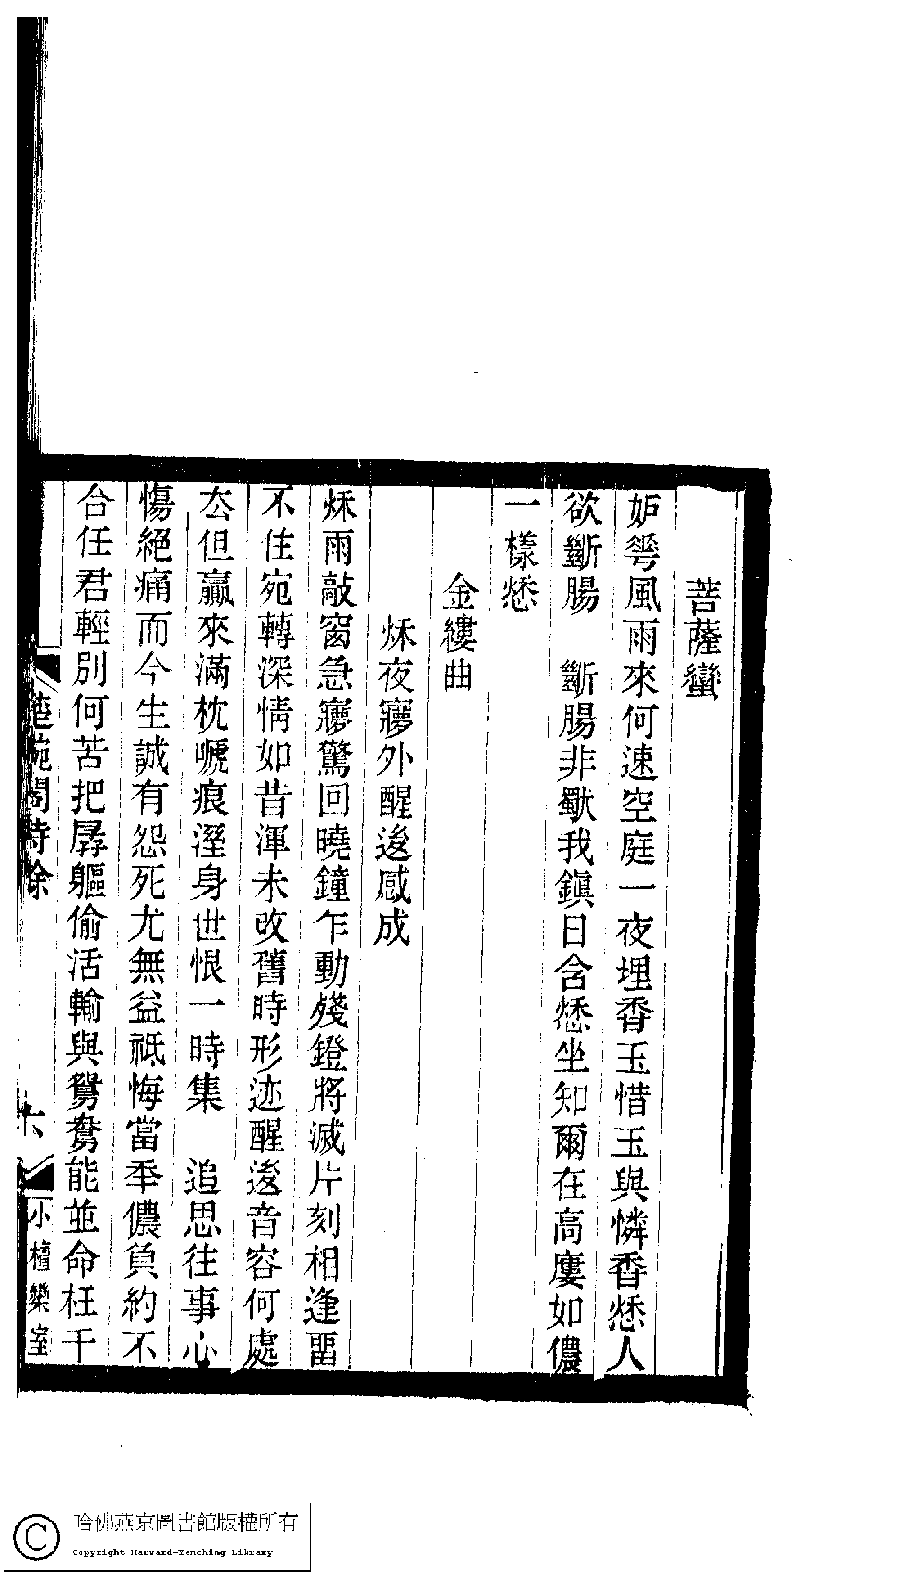 菩薩蠻
妒夸風雨來何速空庭一夜埋香玉惜玉與憐香愁人
欲斷腸　斷腸非歇我鎭日含愁坐知爾在高廔如儂
一樣愁
金縷曲
秌夜寱外醒後感成
秌雨敲窗急寱驚回曉鐘乍動殘鐙將滅片刻相逢畱
不住宛轉深情如昔渾未改舊時形迹醒後音容何處
厺但贏來滿枕嗁痕溼身世恨一時集　追思往事心
傷絕痛而今生誠有怨死尤無益祇悔當秊儂負約不
合任君輕別何苦把孱軀偷活輸與鴛鴦能竝命枉千
閣詩餘
六
小檀欒室
哈佛燕京圖書館版權所有
Copyright Harvard-Yenching Library